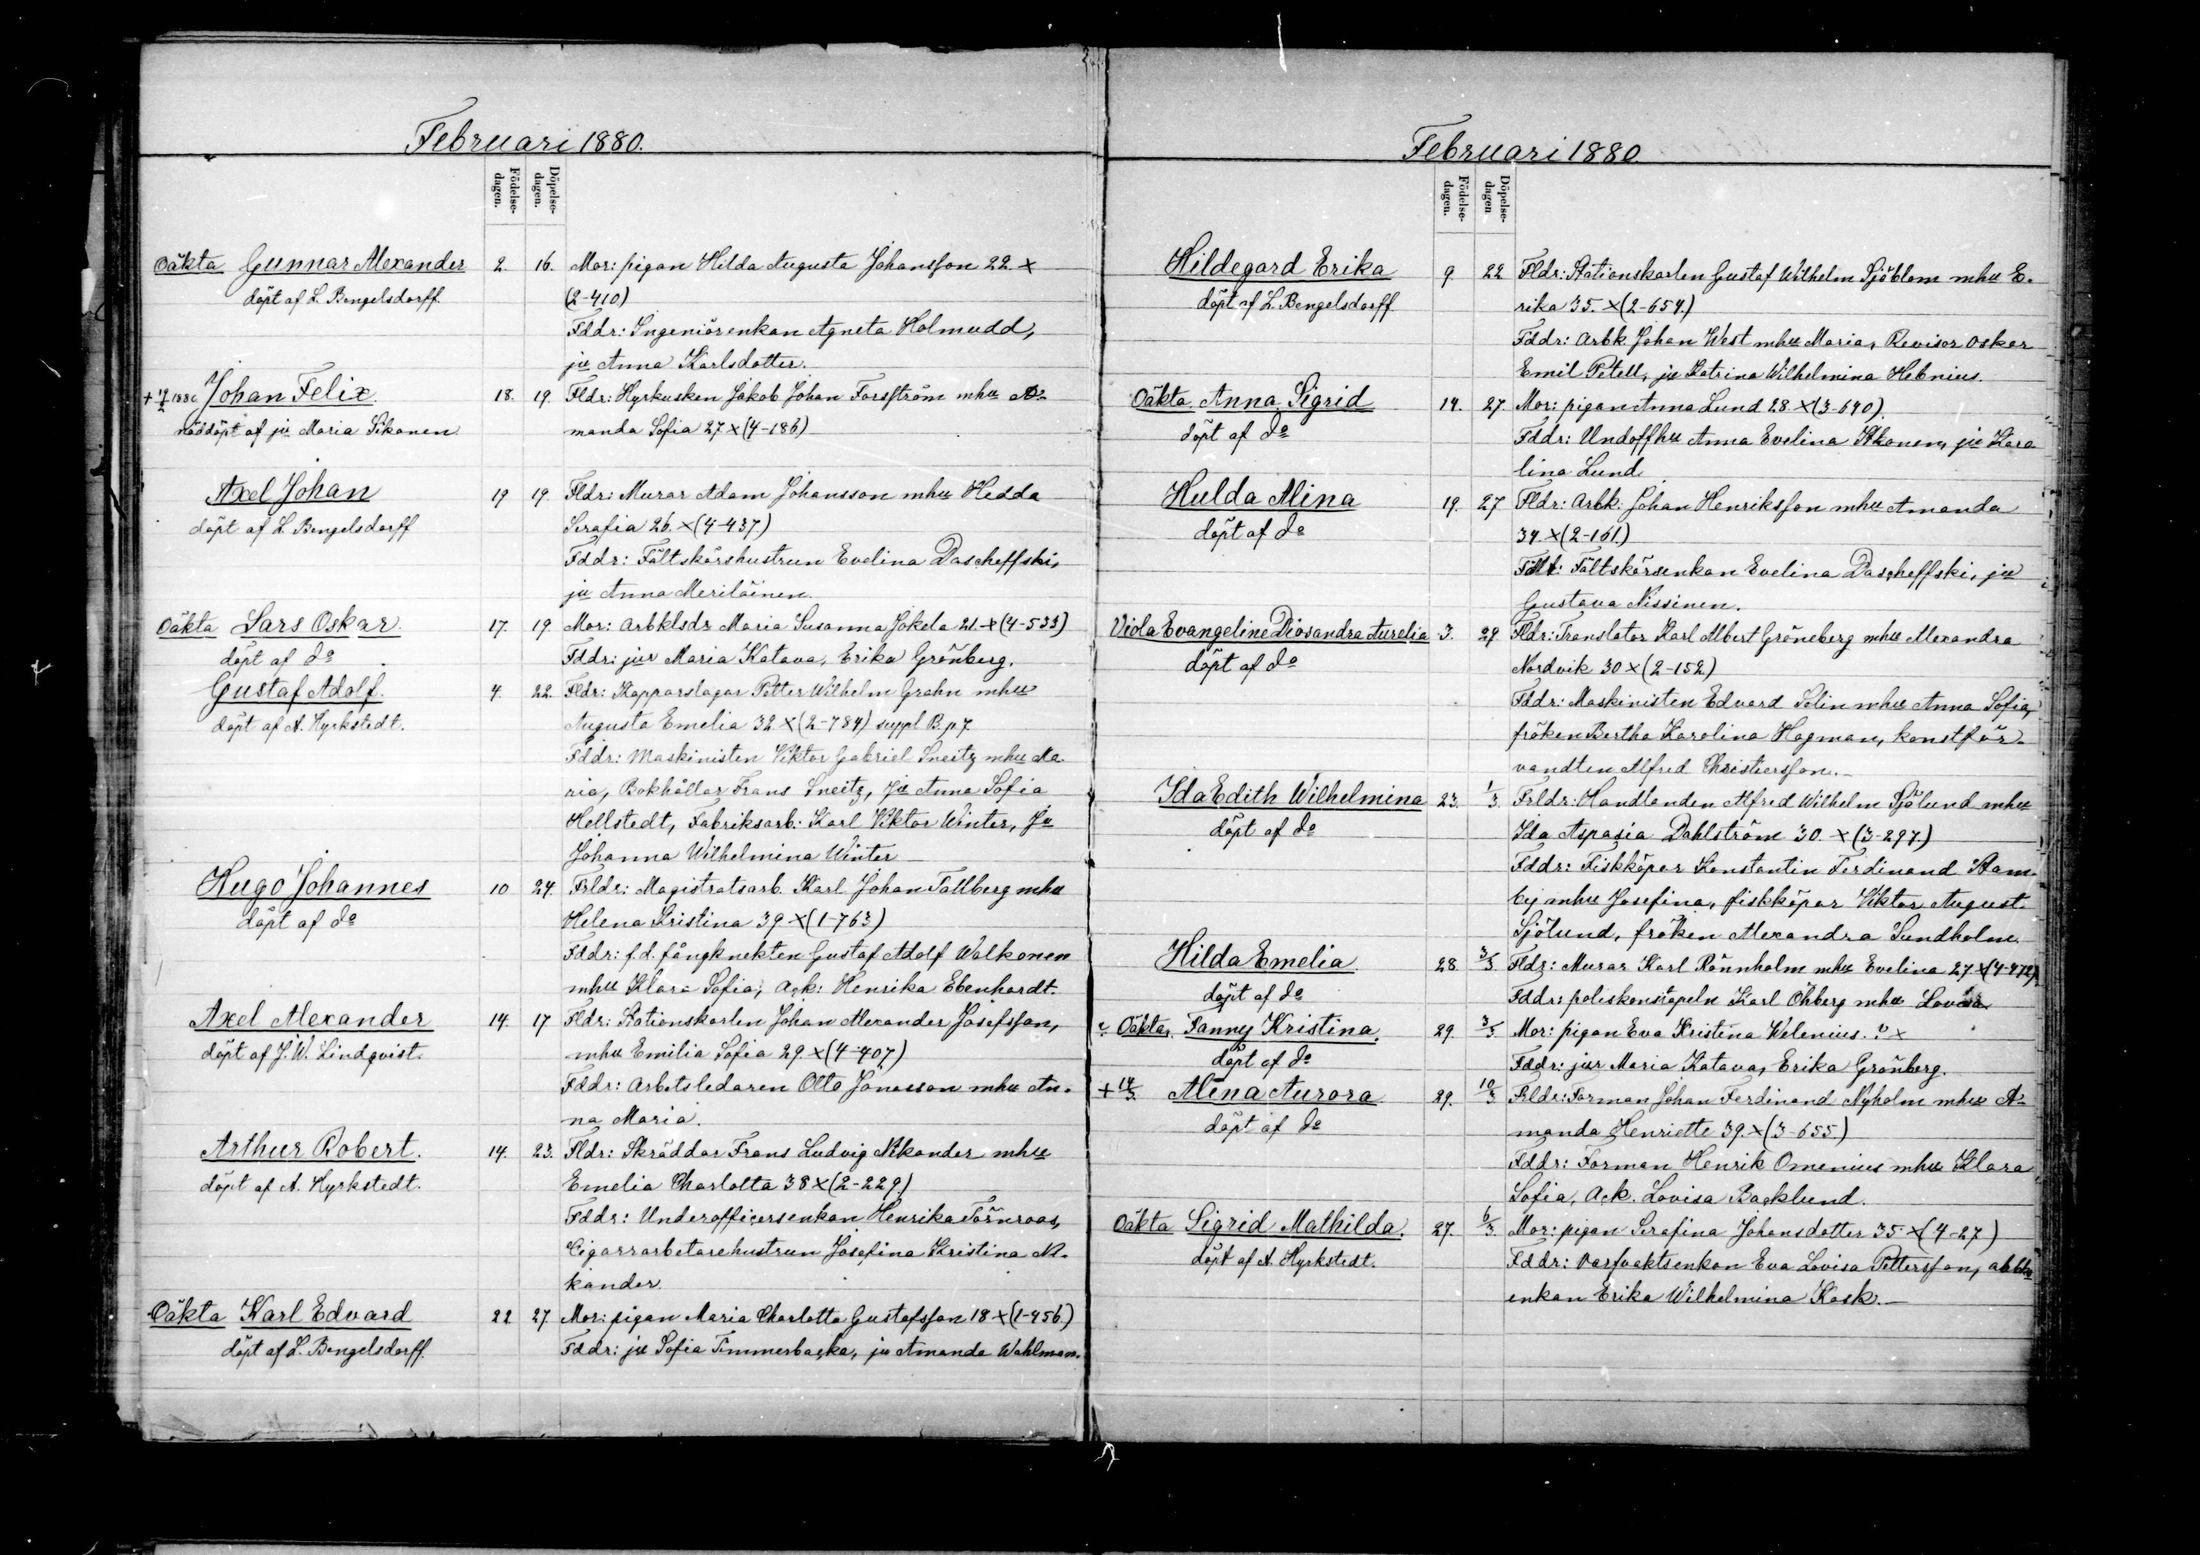 Februari 1880.
Födelse-dagen.
Döpelse-dagen.
Oäkta Gunnar Alexander 2. 16. Mor: pigan Hilda Augusta Johansson 22 ×
döpt af L. Bengelsdorff (2-410)
Fddr: Ingeniörenkan Agneta Holmudd,
jn Anna Karlsdotter.
1880 Johan Felix 18. 19. Fldr: Hyrkusken Jakob Johan Forsström mhu A-
nöddöpt af jn Maria Tikanen manda Sofia 27 × (4-186)
Axel Johan 19 19. Fldr: Murar Adam Johansson mhu Hedda
döpt af L. Bengelsdorff Serafia 26. × (4-437)
Fddr: Fältskärshustrun Evelina Dascheffski,
jn Anna Meriläinen.
Oäkta Lars Oskar 17. 19. Mor: Arbklsdr Maria Susanna Jokela 21. × (4-533)
döpt af do Fddr: jnr Maria Katava, Erika Grönberg.
Gustaf Adolf. 4. 22. Fldr: Kopparslagar Petter Wilhelm Grahn mhu
döpt af A. Hyrkstedt. Augusta Emelia 32 × (2-784) suppl B. p. 7.
Fddr: Maskinisten Viktor Gabriel Sneitz mhu Ma-
ria, Bokhållar Frans Sneitz, jn Anna Sofia
Hellstedt, Fabriksarb. Karl Viktor Winter, Jn
Johanna Wilhelmina Winter
Hugo Johannes 10 24. Frldr: Magistratsarb. Karl Johan Tallberg mhu
döpt af do Helena Kristina 39 × (1-763)
Fddr: f. d. fångknekten Gustaf Adolf Walkonen
mhu Klara Sofia, Ack: Henrika Ebenhardt.
Axel Alexander 14. 17 Fldr: Stationskarlen Johan Alexander Josefsson,
döpt af J. W. Lindqvist. mhu Emilia Sofia 29 × (4-407)
Fddr: Arbetsledaren Otto Jönsson mhu An-
na Maria.
Arthur Robert. 14. 23. Fldr: Skräddar Frans Ludvig Nikander mhu
döpt af A. Hyrkstedt. Emelia Charlotta 38 × (2-229)
Fddr: Underofficersenkan Henrika Törnroos,
Cigarrarbetarehustrun Josefina Kristina Ni-
kander.
Oäkta Karl Edvard 22 27. Mor: pigan Maria Charlotta Gustafsson 18 × (1-456)
döpt af L. Bengelsdorff. Fddr: jn Sofia Timmerbacka, jn Amanda Wahlman.
Februari 1880
Födelse-dagen.
Döpelse-dagen
Hildegard Erika 9. 22 Fldr: Stationskarlen Gustaf Wilhelm Sjöblom mhu E-
döpt af L. Bengelsdorff rika 35. × (2-654.)
Fddr: Arbk Johan West mhu Maria, Revisor Oskar
Emil Petell, jn Katrina Wilhelmina Hebnius.
Oäkta Anna Sigrid 14. 27. Mor: pigan Anna Lund 28. × (3-640).
döpt af do Fddr: Undoffhu Anna Evelina Ikonen, jn Karo
lina Lund
Hulda Alina 19. 27 Fldr: Arbk. Johan Henriksson mhu Amanda
döpt af do 34. × (2-161.)
Fddr: Fältskärsenkan Evelina Dascheffski, jn
Gustava Nissinen.
Viola Evangeline Diosandra Aurelia 3. 29 Fldr: Translator Karl Albert Gröneberg mhu Alexandra
döpt af do Nordvik 30 × (2-152)
Fddr: Maskinisten Edvard Selin mhu Anna Sofia,
fröken Bertha Karolina Hagman, konstför-
vandten Alfred Christiersson.
Ida Edith Wilhelmina 23. 1/3. Frldr: Handlanden Alfred Wilhelm Sjölund mhu
döpt af do Ida Aspasia Dahlström 30. × (3-297.)
Fddr: Fiskköpar Konstantin Ferdinand Stam-
bej mhu Josefina, fiskköpar Viktor August
Sjölund, fröken Alexandra Sundholm.
Hilda Emelia 28. 3/3 Fldr: Murar Karl Rönnholm mhu Evelina 27 × (4-472)
döpt af do Fddr: poliskonstapeln Karl Öhberg mhu Lovisa
Oäkta, Fanny Kristina. 29. 3/3 Mor: pigan Eva Kristina Welenius. ? ×
döpt af do Fddr: jnr Maria Katava, Erika Grönberg.
+ 14/3. Alina Aurora 29. 10/3 Frldr: Forman Johan Ferdinand Nyholm mhu A-
döpt af do manda Henriette 39. × (3-655.)
Fddr: Forman Henrik Omenius mhu Klara
Sofia, Ack. Lovisa Backlund.
Oäkta Sigrid Mathilda. 27. 6/3. Mor: pigan Serafina Johansdotter 35 × (4-27)
döpt af A. Hyrkstedt. Fddr: Varfvaktsenkan Eva Lovisa Pettersson, abbks
enkan Erika Wilhelmina Kask.